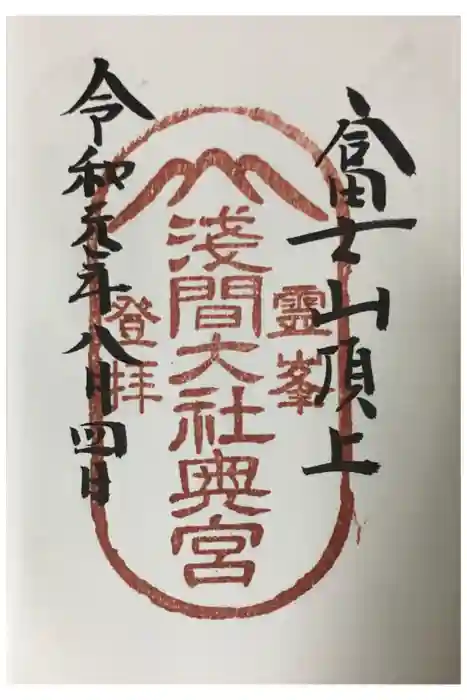 富士山頂上
靈峯
淺間大社奥宮
登拝
令和元年八月四日